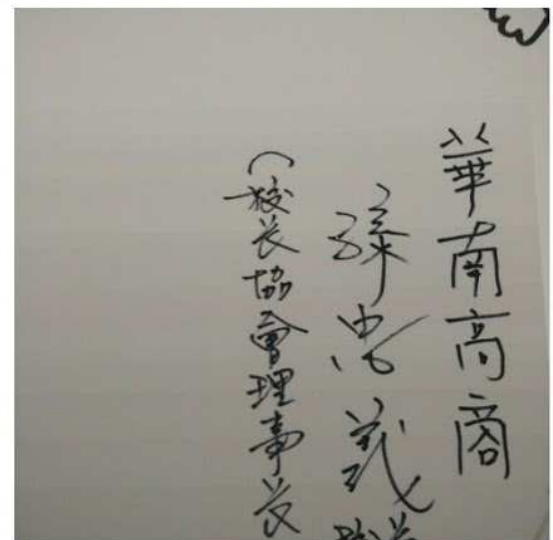 華南高商
孫忠義
(校长協會理事长